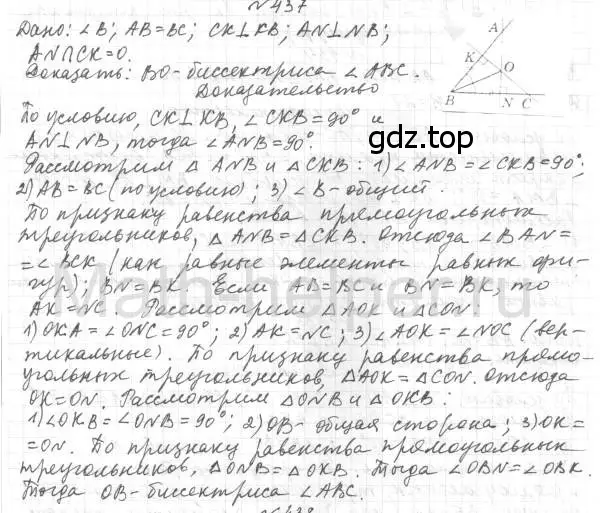 №437
Дано: ∠B; AB=BC; CK⊥KB; AN⊥NB;
AN∩CK=O.
Доказать: BO-биссектриса ∠ABC.
Доказательство
По условию, CK⊥KB, ∠CKB=90° и
AN⊥NB, тогда ∠ANB=90°.
Рассмотрим △ANB и △CKB: 1) ∠ANB=∠CKB=90°;
2) AB=BC (по условию); 3) ∠B-общий.
По признаку равенства прямоугольных
треугольников, △ANB=△CKB. Отсюда ∠BAN=
=∠BCK (как равные элементы равных фи-
гур); BN=BK. Если AB=BC и BN=BK, то
AK=NC. Рассмотрим △AOK и △CON.
1) OKA=∠ONC=90°; 2) AK=NC; 3) ∠AOK=∠NOC (вер-
тикальные). По признаку равенства прямо-
угольных треугольников, △AOK=△CON. Отсюда
OK=ON. Рассмотрим △ONB и △OKB:
1) ∠OKB=∠ONB=90°; 2) OB-общая сторона; 3) OK=
=ON. По признаку равенства прямоугольных
треугольников, △ONB=△OKB. Тогда ∠OBN=∠OBK.
Тогда OB-биссектриса ∠ABC.
№438
A
K
O
B
N
C
gdz.top
Math-helper.ru